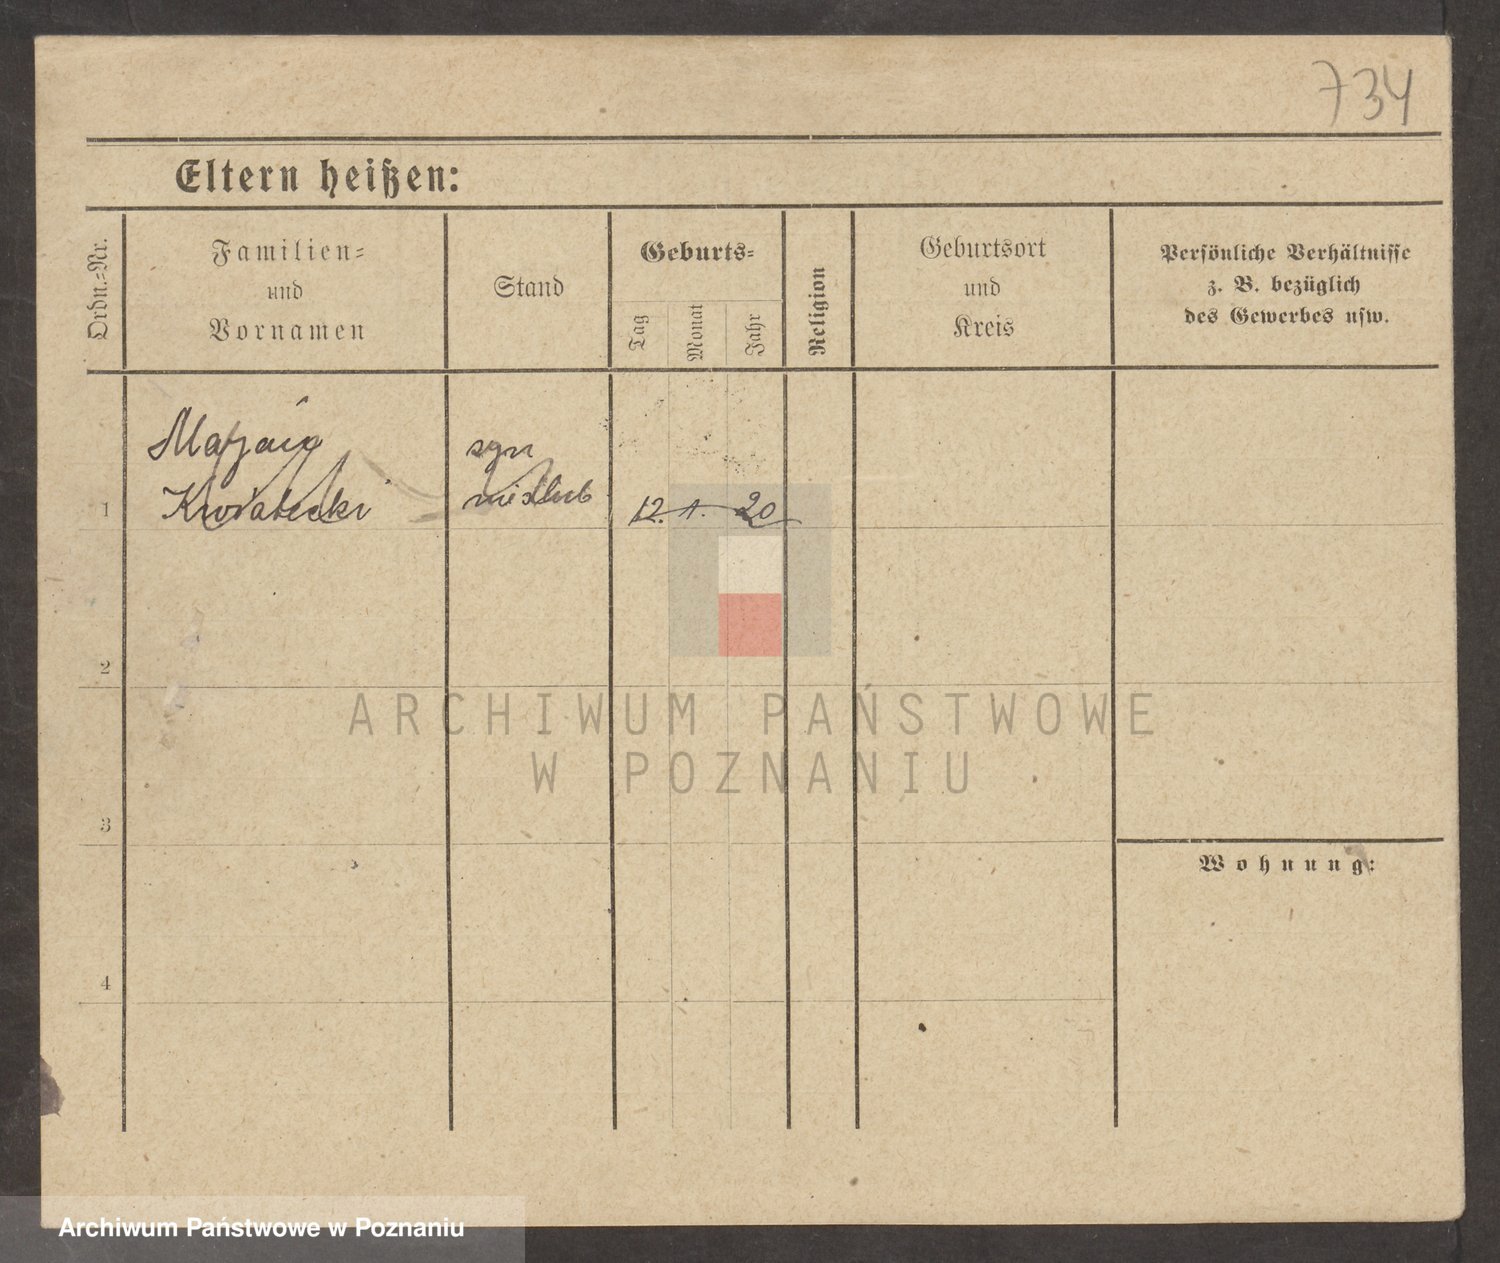 734
Eltern heißen:
Ordn.-Nr.
Familien-
und
Vornamen
Stand
Geburts-
Tag
Monat
Jahr
Religion
Geburtsort
und
Kreis
Persönliche Verhältnisse
z. B. bezüglich
des Gewerbes usw.
syn
1
Kwiatecki
nieślub
12. 1. 20
2
ARCHIWUM PAŃSTWOWE
W POZNANIU
3
Wohnung:
4
Archiwum Państwowe w Poznaniu